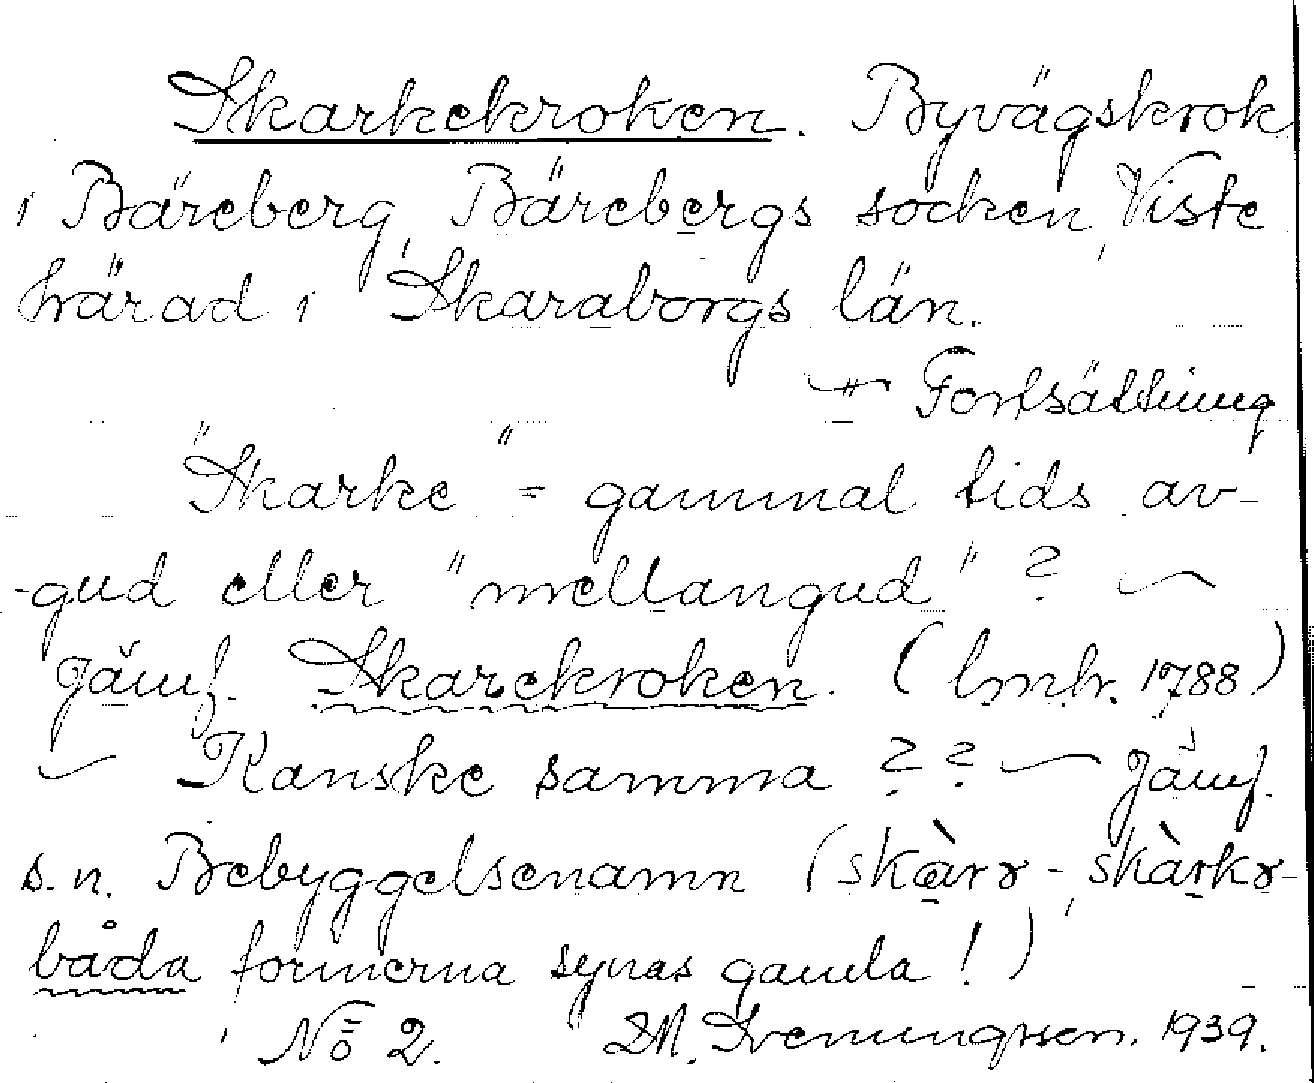 Skarkekroken. Byvägskrok
i Bäreberg, Bärebergs socken, Viste
härad i Skaraborgs län.
Fortsättning
"Skarke" = gammal tids av-
-gud eller "mellangud" ? —
Jämf. Skarekroken. (lmhr. 1788)
— Kanske samma ? ? — Jämf.
s.n. Bebyggelsenamn (skàrɤ-, skàrkɤ-
båda formerna synas gamla!)
No 2. Iveningssen. 1939.